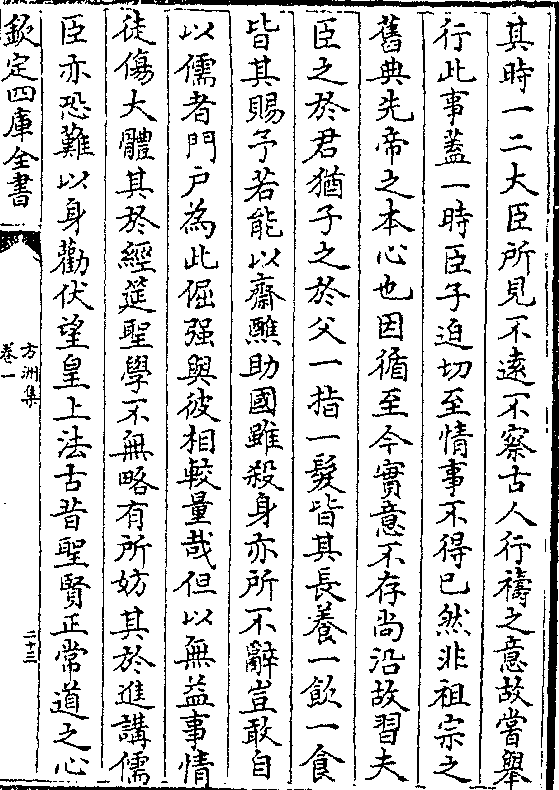 其時一二大臣所見不遠不察古人行禱之意故嘗舉
行此事蓋一時臣子迫切至情事不得已然非祖宗之
舊典先帝之本心也因循至今實意不存尚沿故習夫
臣之於君猶子之於父一指一髮皆其長養一飲一食
皆其賜予若能以齋醮助國雖殺身亦所不辭豈敢自
以儒者門戶為此倔强與彼相較量哉但以無益事情
徒傷大體其於經筵聖學不無略有所妨其於進講儒
臣亦恐難以身勸伏望皇上法古昔聖賢正常道之心
欽定四庫全書
方洲集
卷一
二十三